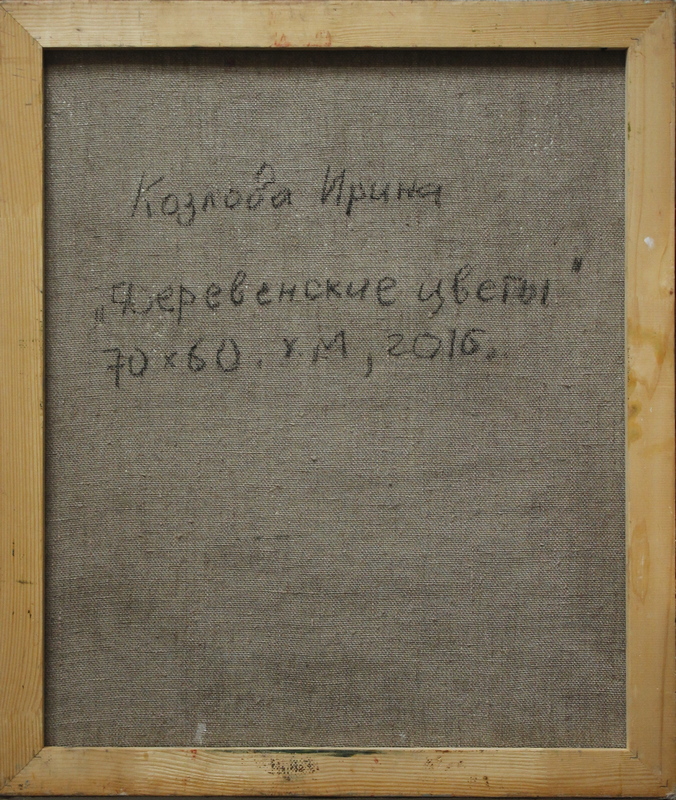 Козлова Ирина
„Деревенские цветы"
70×60. х.м, 2016.